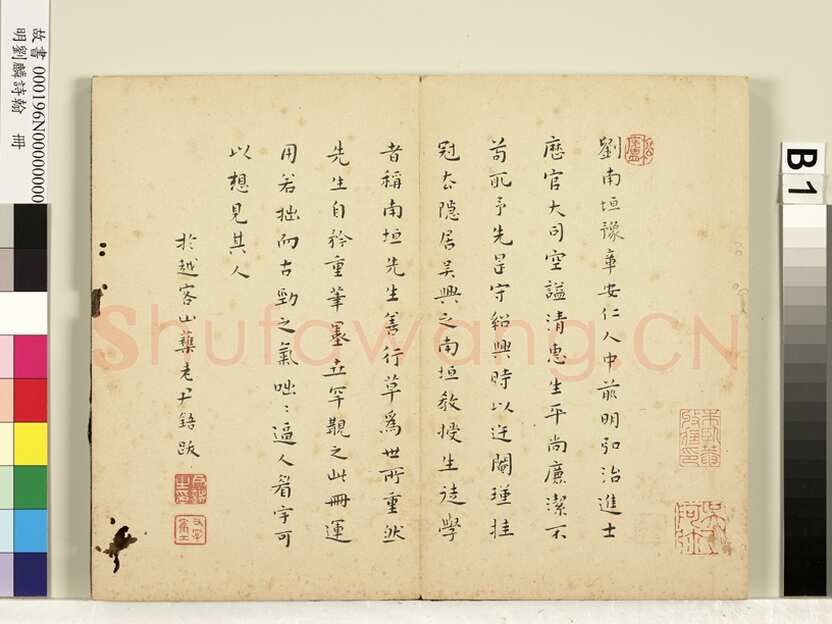 劉南垣豫章安仁人中前明弘治進士
歷官大司空諡清惠生平尚廉潔不
苟取予先是守紹興時以迕閹瑾挂
冠去隱居吴興之南垣教授生徒學
者稱南垣先生善行草爲世所重然
先生自矜重筆墨亦罕覯之此冊運
用若拙而古勁之氣咄〻逼人看字可
以想見其人
於越客山藥老尹鋙跋
故書 000196N000000000
明劉麟詩翰 冊
B1
Shufawang.CN